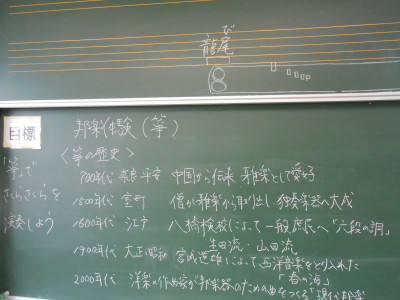 び
龍尾
目標
「箏」で
さくらさくらを
演奏しよう
邦楽体験（箏）
〈箏の歴史〉
700年代 奈良・平安 中国から伝来 雅楽として愛好
1500年代 室町 僧が雅楽から取り出し、独奏楽器へ大成
1600年代 江戸 八橋検校によって一般庶民へ「六段の調」
生田流・山田流
1900年代 大正・昭和 宮城道雄によって西洋音楽をとり入れた
「春の海」
2000年代 洋楽の作曲家が邦楽器のための曲をつくる「現代邦楽